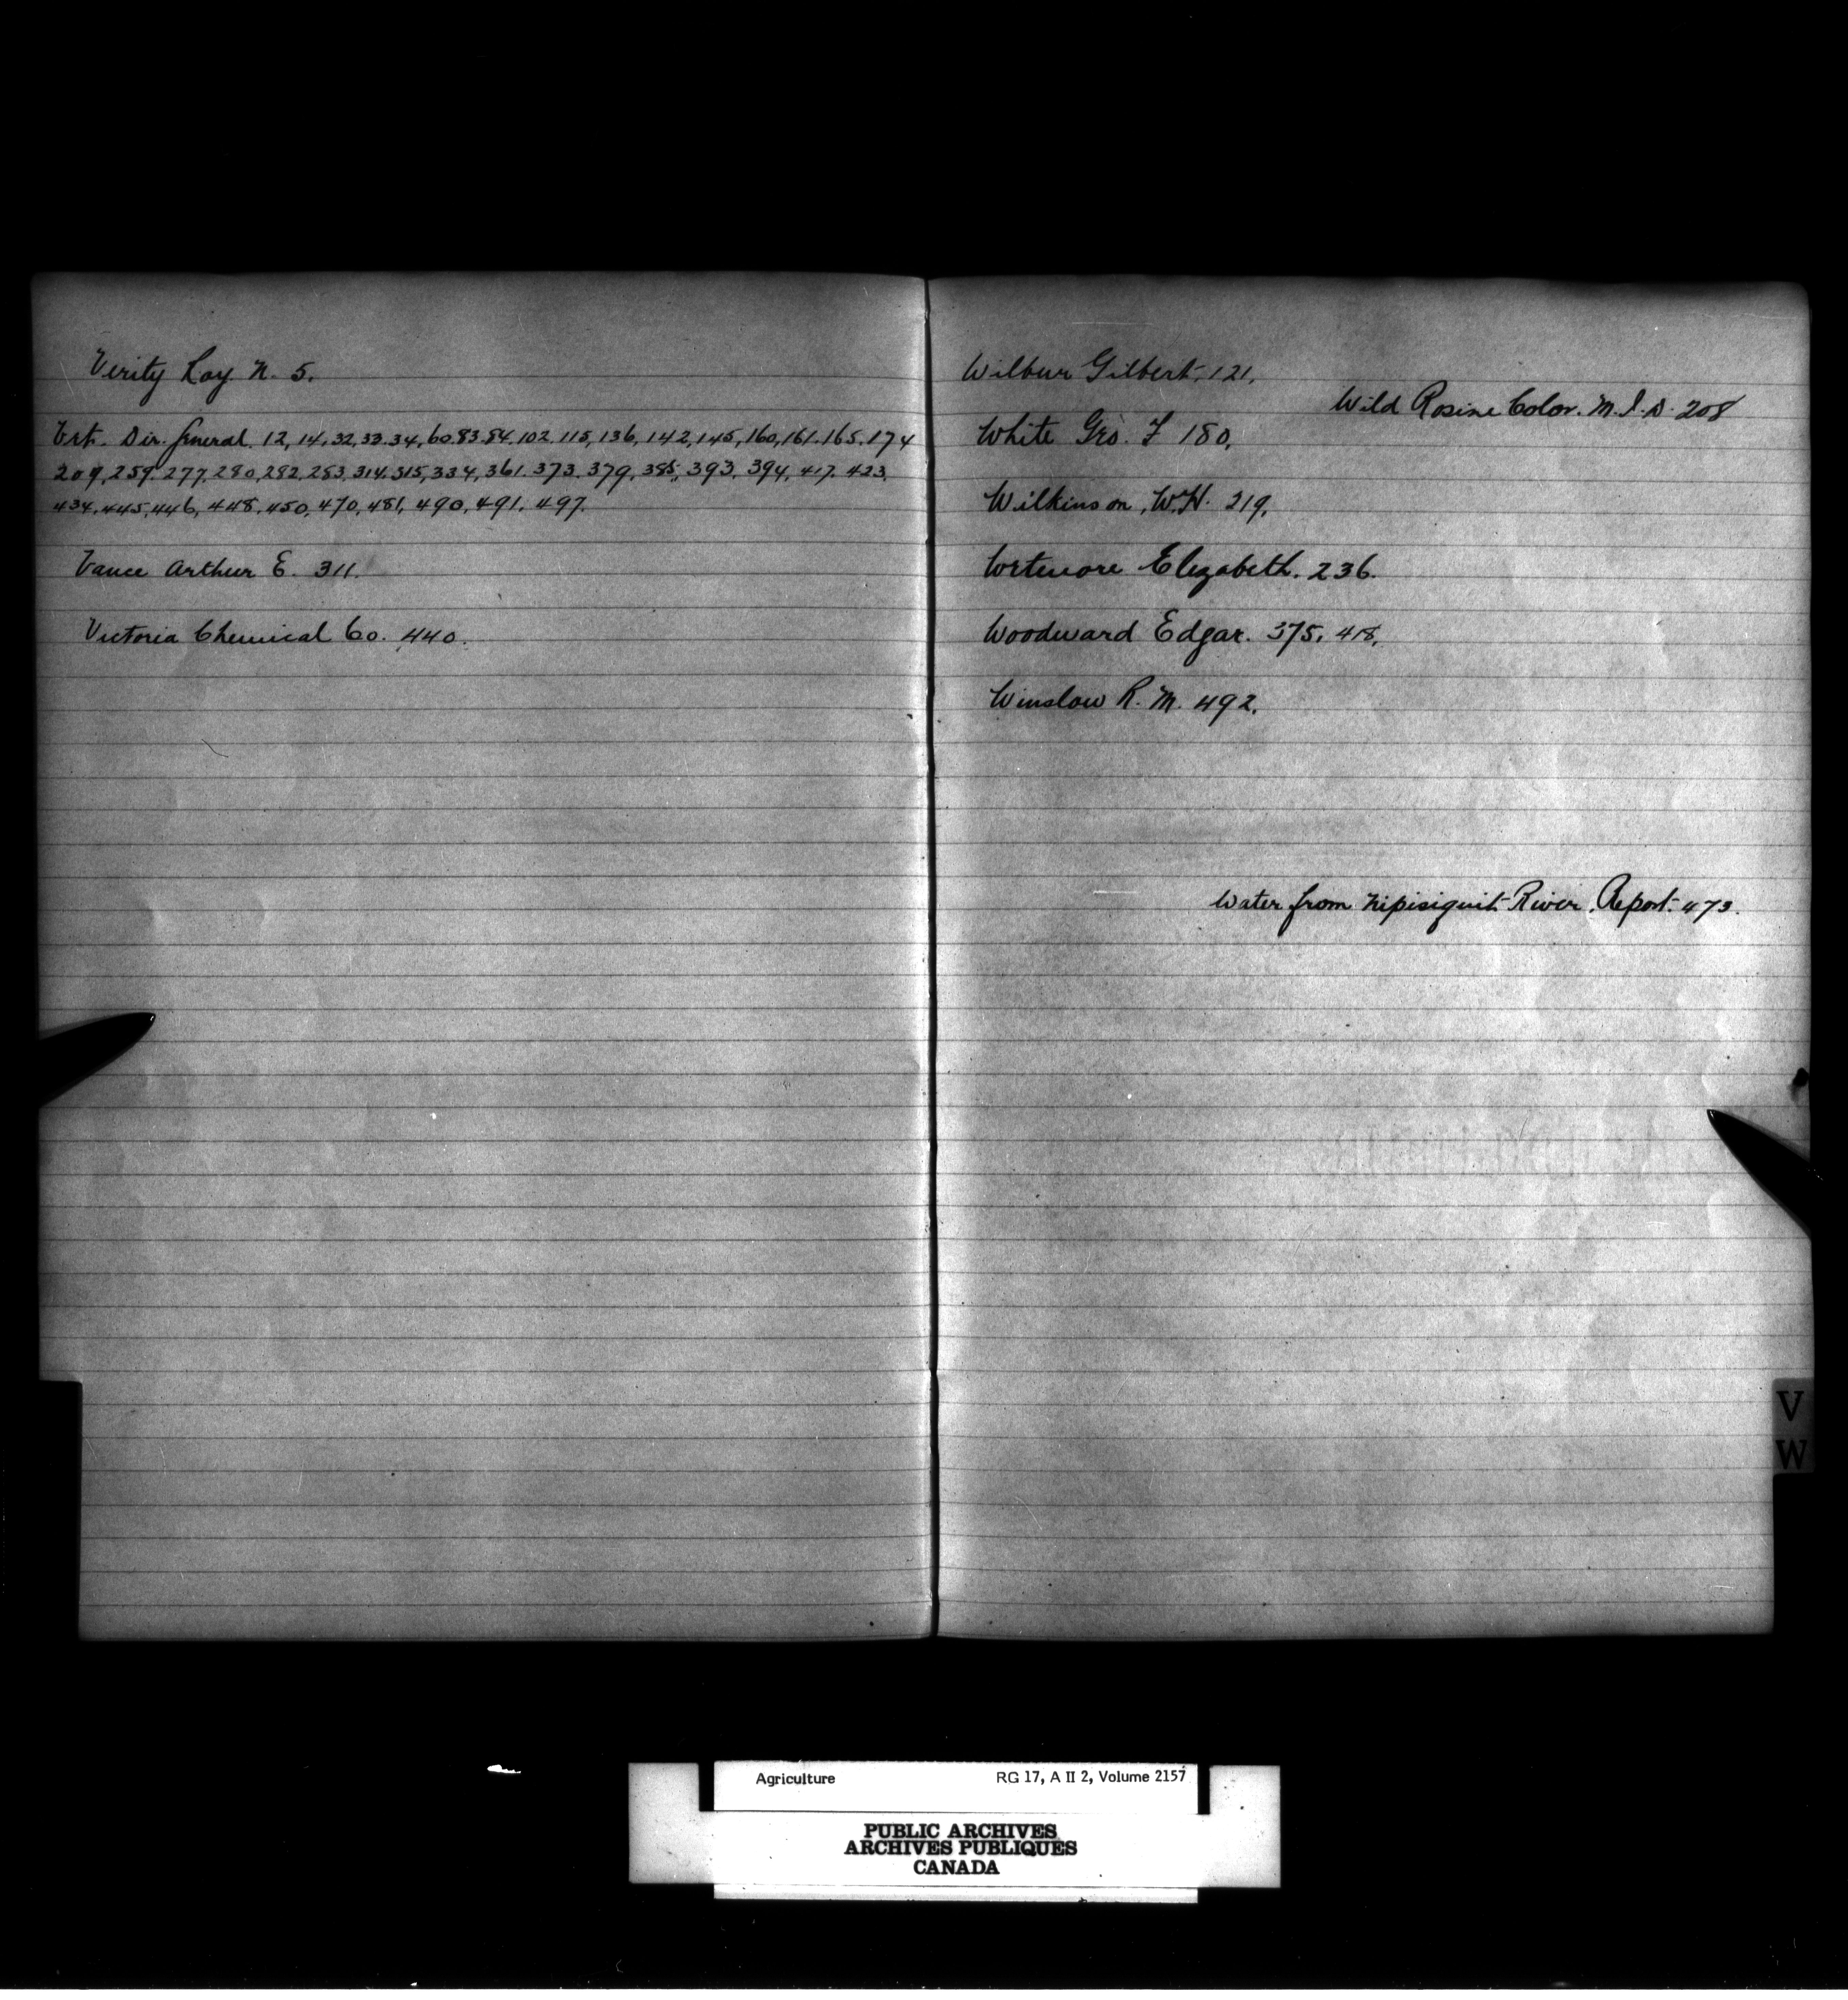 Verity Roy. N. 5.
Vet. Dir. General. 12, 14, 32, 33, 34, 60. 83. 84. 102. 115, 136, 142, 145, 160, 161. 165. 174
209, 259. 277, 280, 282. 283, 314. 315, 334, 361. 373. 379, 385, 393, 394, 417. 423.
434. 445, 446, 448. 450, 470, 481, 490, 491. 497.
Vance Arthur E. 311.
Victoria Chemical Co. 440.
Wilbur Gilbert, 121.
Wild Rosine Color. M.I.D. 208
White Geo. F 180.
Wilkinson, W.H. 219.
Elizabeth. 236.
Woodward Edgar. 375, 418.
Winslow R. M. 492.
Water from Nipisiquit River. Report. 473.
V
W
Agriculture RG 17, A II 2, Volume 2157
PUBLIC ARCHIVES
ARCHIVES PUBLIQUES
CANADA